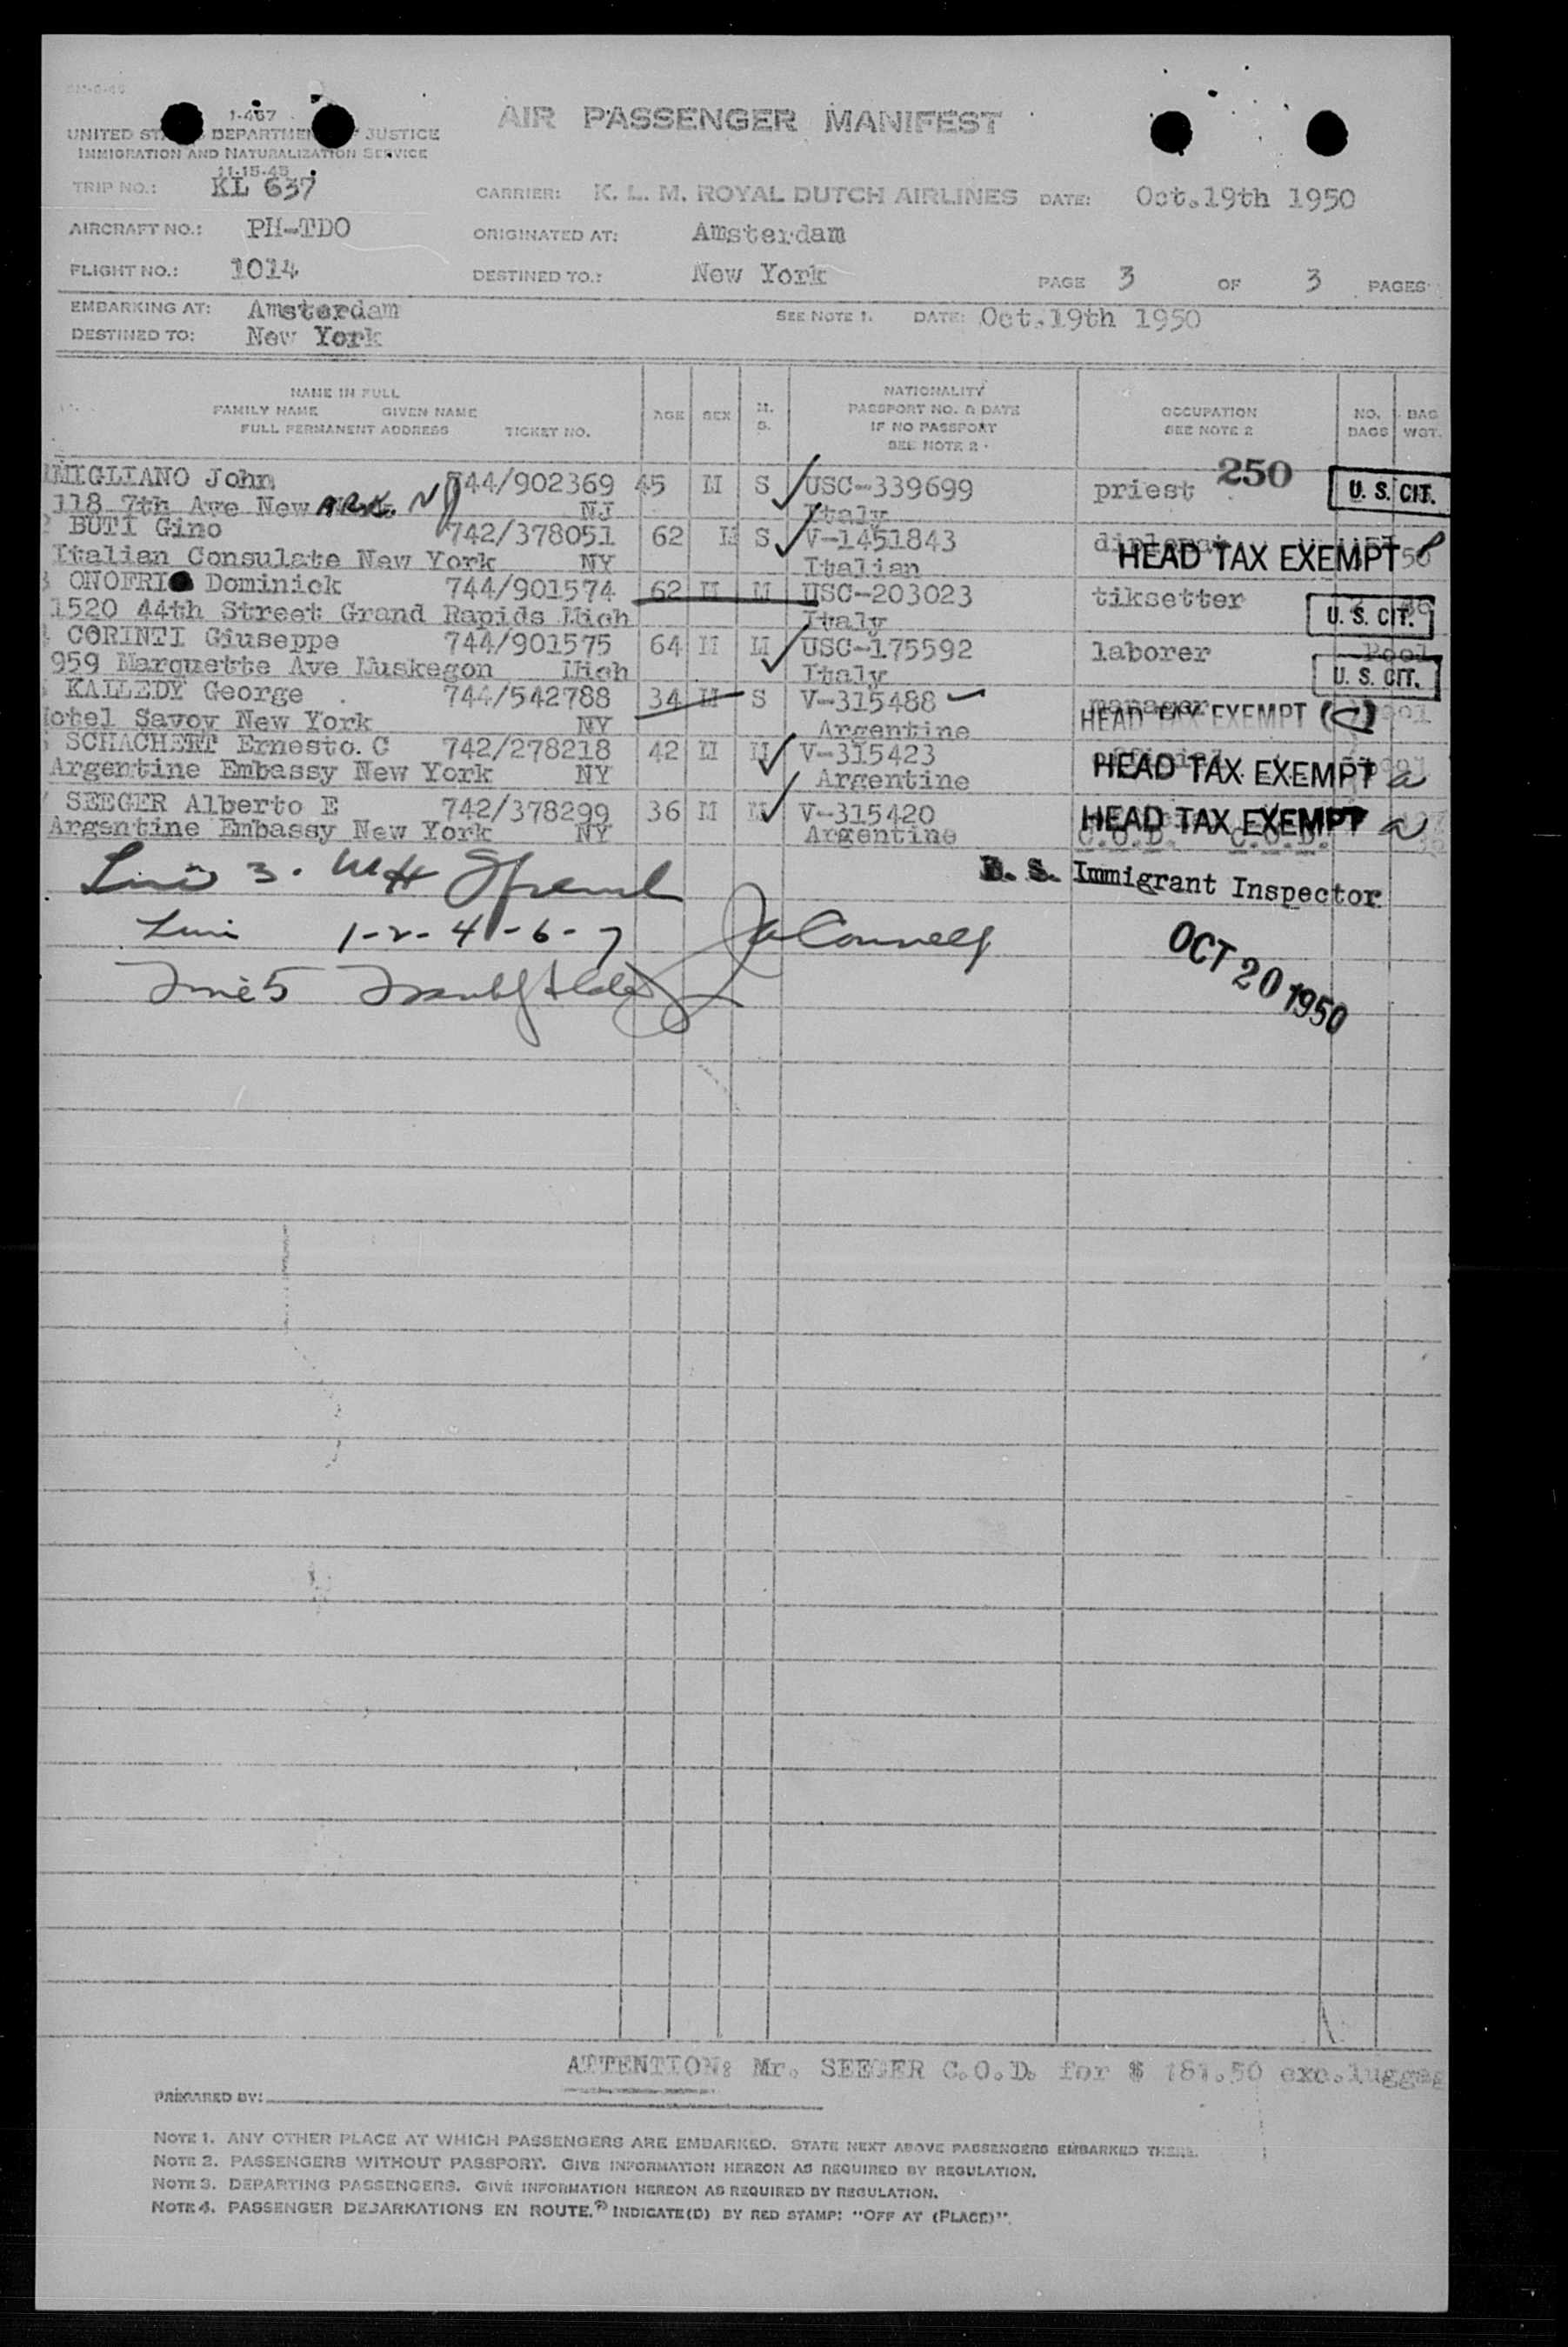 1-467
UNITED STATES DEPARTMENT OF JUSTICE
IMMIGRATION AND NATURALIZATION SERVICE
11-15-45
AIR PASSENGER MANIFEST
TRIP NO.: KL 637 CARRIER: K. L. M. ROYAL DUTCH AIRLINES DATE: Oct.19th 1950
AIRCRAFT NO.: PH-TDO ORIGINATED AT: Amsterdam
FLIGHT NO.: 1014 DESTINED TO.: New York PAGE 3 OF 3 PAGES
EMBARKING AT: Amsterdam SEE NOTE 1. DATE: Oct.19th 1950
DESTINED TO: New York
NAME IN FULL
FAMILY NAME GIVEN NAME
FULL PERMANENT ADDRESS TICKET NO.
AGE SEX M. S.
NATIONALITY
PASSPORT NO. & DATE
IF NO PASSPORT
SEE NOTE 2
OCCUPATION
SEE NOTE 2
NO. BAGS
BAG WGT.
MIGLIANO John 744/902369 45 M S USC-339699 priest 250 U. S. CIT.
118 7th Ave New ARK. NJ NJ Italy
BUTI Gino 742/378051 62 M S V-1451843 diplomat HEAD TAX EXEMPT 50
Italian Consulate New York NY Italian
ONOFRI Dominick 744/901574 62 M M USC-203023 tiksetter
1520 44th Street Grand Rapids Mich Italy U. S. CIT.
CORINTI Giuseppe 744/901575 64 M M USC-175592 laborer Pool
959 Marquette Ave Muskegon Mich Italy U. S. CIT.
KALLEDY George 744/542788 34 M S V-315488 manager
Hotel Savoy New York NY Argentine HEAD TAX EXEMPT (C)
SCHACHERT Ernesto. C 742/278218 42 M M V-315423 official
Argentine Embassy New York NY Argentine HEAD TAX EXEMPT a
SEEGER Alberto E 742/378299 36 M M V-315420 HEAD TAX EXEMPT a
Argentine Embassy New York NY Argentine C.O.D. C.O.D.
Line 3.
U. S. Immigrant Inspector
Line 1-2-4-6-7
OCT 20 1950
Line 5
ATTENTION: Mr. SEEGER C.O.D. for $ 181.50 exc.luggag
PREPARED BY:
NOTE 1. ANY OTHER PLACE AT WHICH PASSENGERS ARE EMBARKED. STATE NEXT ABOVE PASSENGERS EMBARKED THERE.
NOTE 2. PASSENGERS WITHOUT PASSPORT. GIVE INFORMATION HEREON AS REQUIRED BY REGULATION.
NOTE 3. DEPARTING PASSENGERS. GIVE INFORMATION HEREON AS REQUIRED BY REGULATION.
NOTE 4. PASSENGER DEBARKATIONS EN ROUTE. INDICATE(D) BY RED STAMP: "OFF AT (PLACE)".